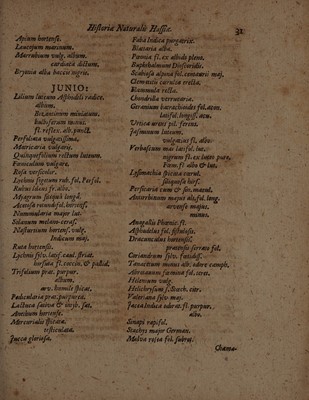 Historiæ Naturalis Hassiæ.
Apium hortense.
Leucojum marinum.
Marrubium vulg. album.
cardiaca dictum.
Bryonia alba baccis nigris.
JUNIO:
Lilium luteum Asphodeli radice.
album.
Byzantinum miniatum.
bulbiferum minus.
fl. reflex. alb. punct.
Perfoliata vulgatissima.
Matricaria vulgaris.
Quinquefolium rectum luteum.
Foeniculum vulgare.
Rosa versicolor.
Lychnis segetum rub. fol. Perfol.
Rubus Idæus fr. albo.
Myagrum siliqua longa.
Acetosa rotundif. hortens.
Nummularia major lut.
Solanum melan-ceras.
Nasturtium hortens. vulg.
Indicum maj.
Ruta hortensis.
Lychnis sylv. latif. caul. striat.
hirsuta fl. coccin. & pallid.
Trifolium prat. purpur.
album.
arv. humile spicat.
Pedicularia prat. purpurea.
Lactuca sativa & virosa.
Anethum hortense.
Mercurialis spicata.
testiculata.
Jucca gloriosa.
Faba Indica purgatrix.
Blattaria alba.
Pæonia fl. ex albido pleno.
Buphthalmum Dioscoridis.
Scabiosa alpina fol. centaurii maj.
Clematis cærulea erecta.
Flammula recta.
Chondrilla verrucaria.
Geranium batrachioides fol. acon.
Urtica urens pil. ferens.
Jasminum luteum.
vulgatius fl. albo.
Verbascum mas latifol. lut.
nigrum fl. ex luteo purp.
Fœm. fl. albo & lut.
Lysimachia spicata
siliquosa hirs.
Persicaria cum & sin. macul.
Antirrhinum majus alt. fol. long.
arvense majus.
minus.
Anagallis Phœnic. fl.
Asphodelus fol. fistulosis.
Dracunculus hortensis.
pratensis serrato fol.
Coriandrum
Tanacetum minus alb. odore camph.
Abrotanum fœmina fol. teret.
Helenium vulg.
Helichrysum s. Stœch. citr.
Valeriana sylv. maj.
Jacea Indica odorat. fl. purpur.
albo.
Sinapi rapifol.
Stachys major German.
Malva rosea fol. subrot.
Chama-